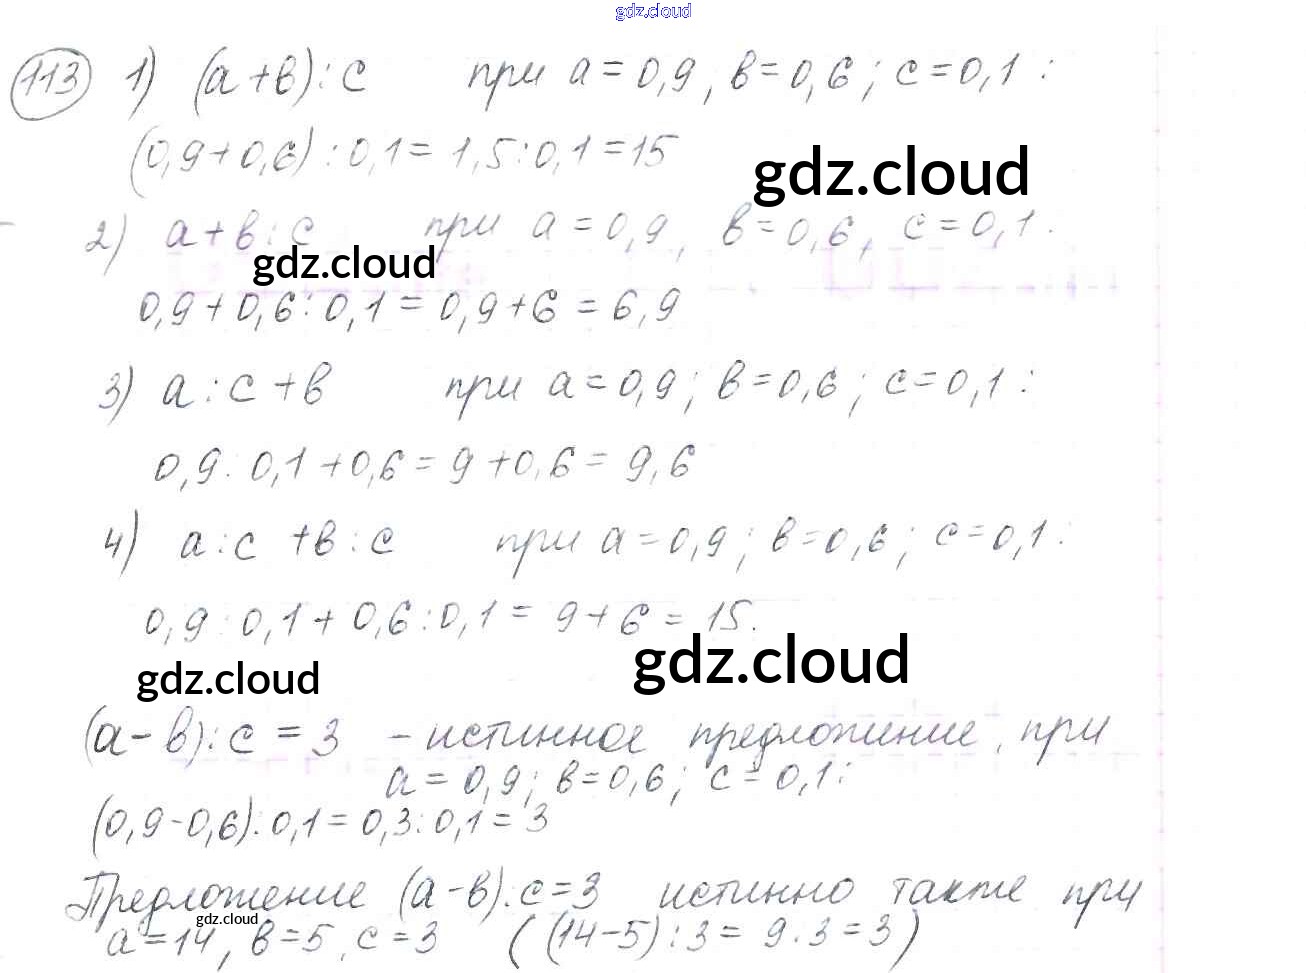 gdz.cloud
113 1) (а+в):с при а=0,9, в=0,6; с=0,1:
(0,9+0,6):0,1=1,5:0,1=15
gdz.cloud
2) а+в:с при а=0,9, в=0,6, с=0,1.
gdz.cloud
0,9+0,6:0,1=0,9+6=6,9
3) а:с+в при а=0,9; в=0,6; с=0,1:
0,9:0,1+0,6=9+0,6=9,6
4) а:с+в:с при а=0,9; в=0,6; с=0,1:
0,9:0,1+0,6:0,1=9+6=15.
gdz.cloud
gdz.cloud
(а-в):с=3 - истинное предложение, при
а=0,9; в=0,6; с=0,1:
(0,9-0,6):0,1=0,3:0,1=3
Предложение (а-в):с=3 истинно также при
gdz.cloud
а=14, в=5, с=3 ((14-5):3=9:3=3)